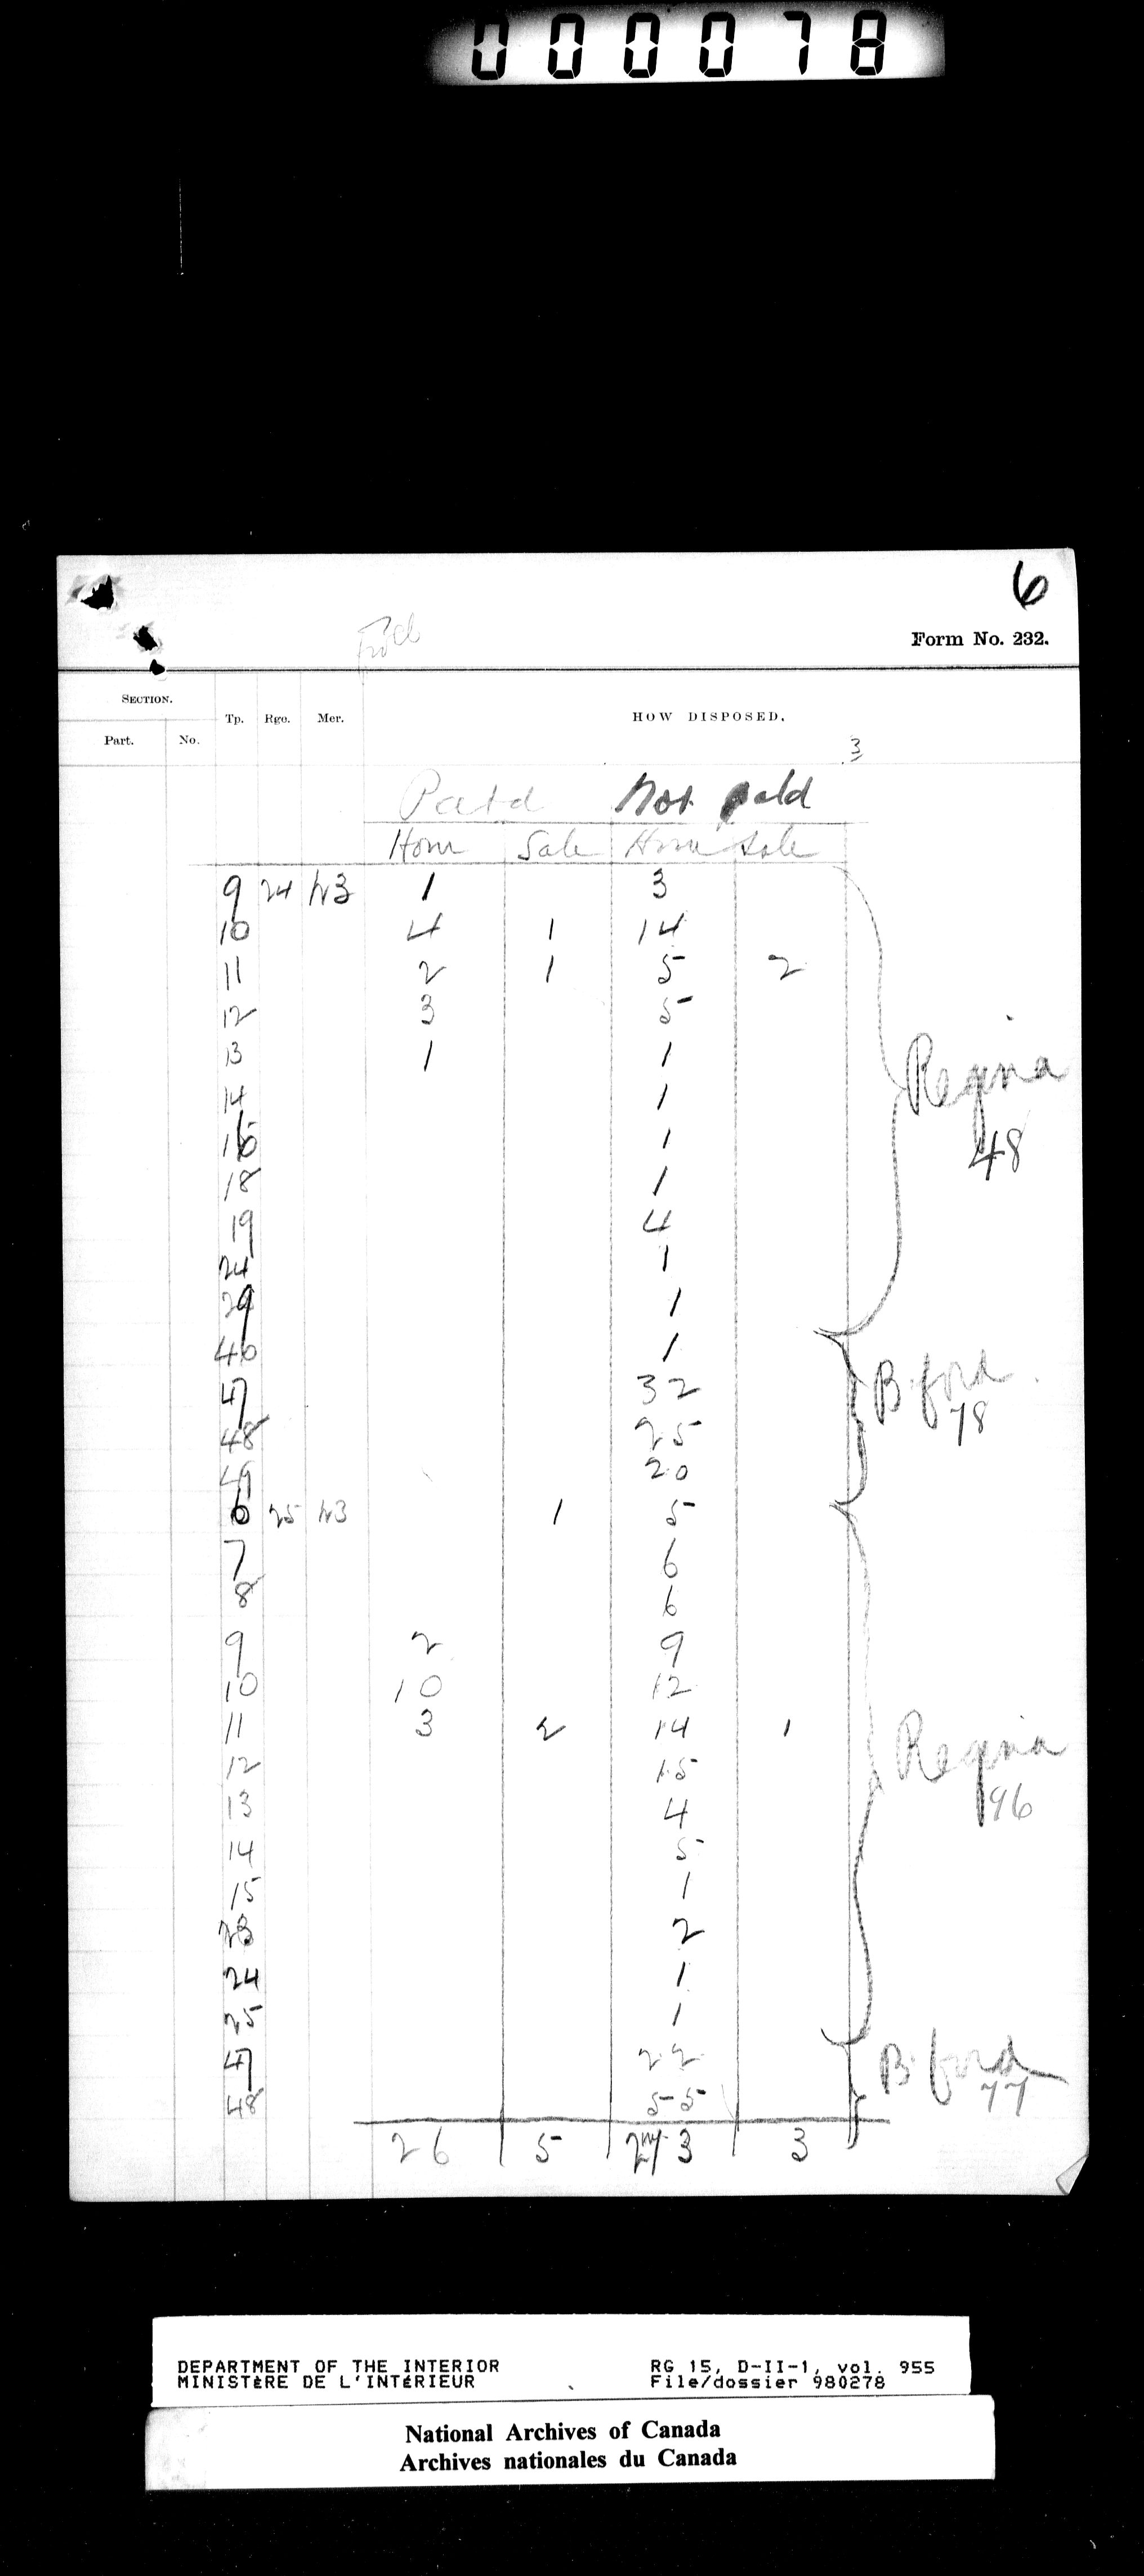 000078
6
Form No. 232.
SECTION. Tp. Rge. Mer. HOW DISPOSED.
Part. No.
3
Patd Not patd
Hom Sale Hom Sale
9 24 W3 1 3
10 4 1 14
11 2 1 5 2
12 3 5
13 1 1
14 1
16 1
18 1
19 4
24 1
29 1
46 1
47 32
48 25
49 20
6 25 W3 1 5
7 6
8 6
9 2 9
10 10 12
11 3 2 14 1
12 15
13 4
14 5
15 1
23 2
24 1
25 1
47 22
48 55
26 5 273 3
Regina
48
B.ford
78
Regina
96
B.ford
77
DEPARTMENT OF THE INTERIOR RG 15, D-II-1, vol. 955
MINISTÈRE DE L'INTÉRIEUR File/dossier 980278
National Archives of Canada
Archives nationales du Canada